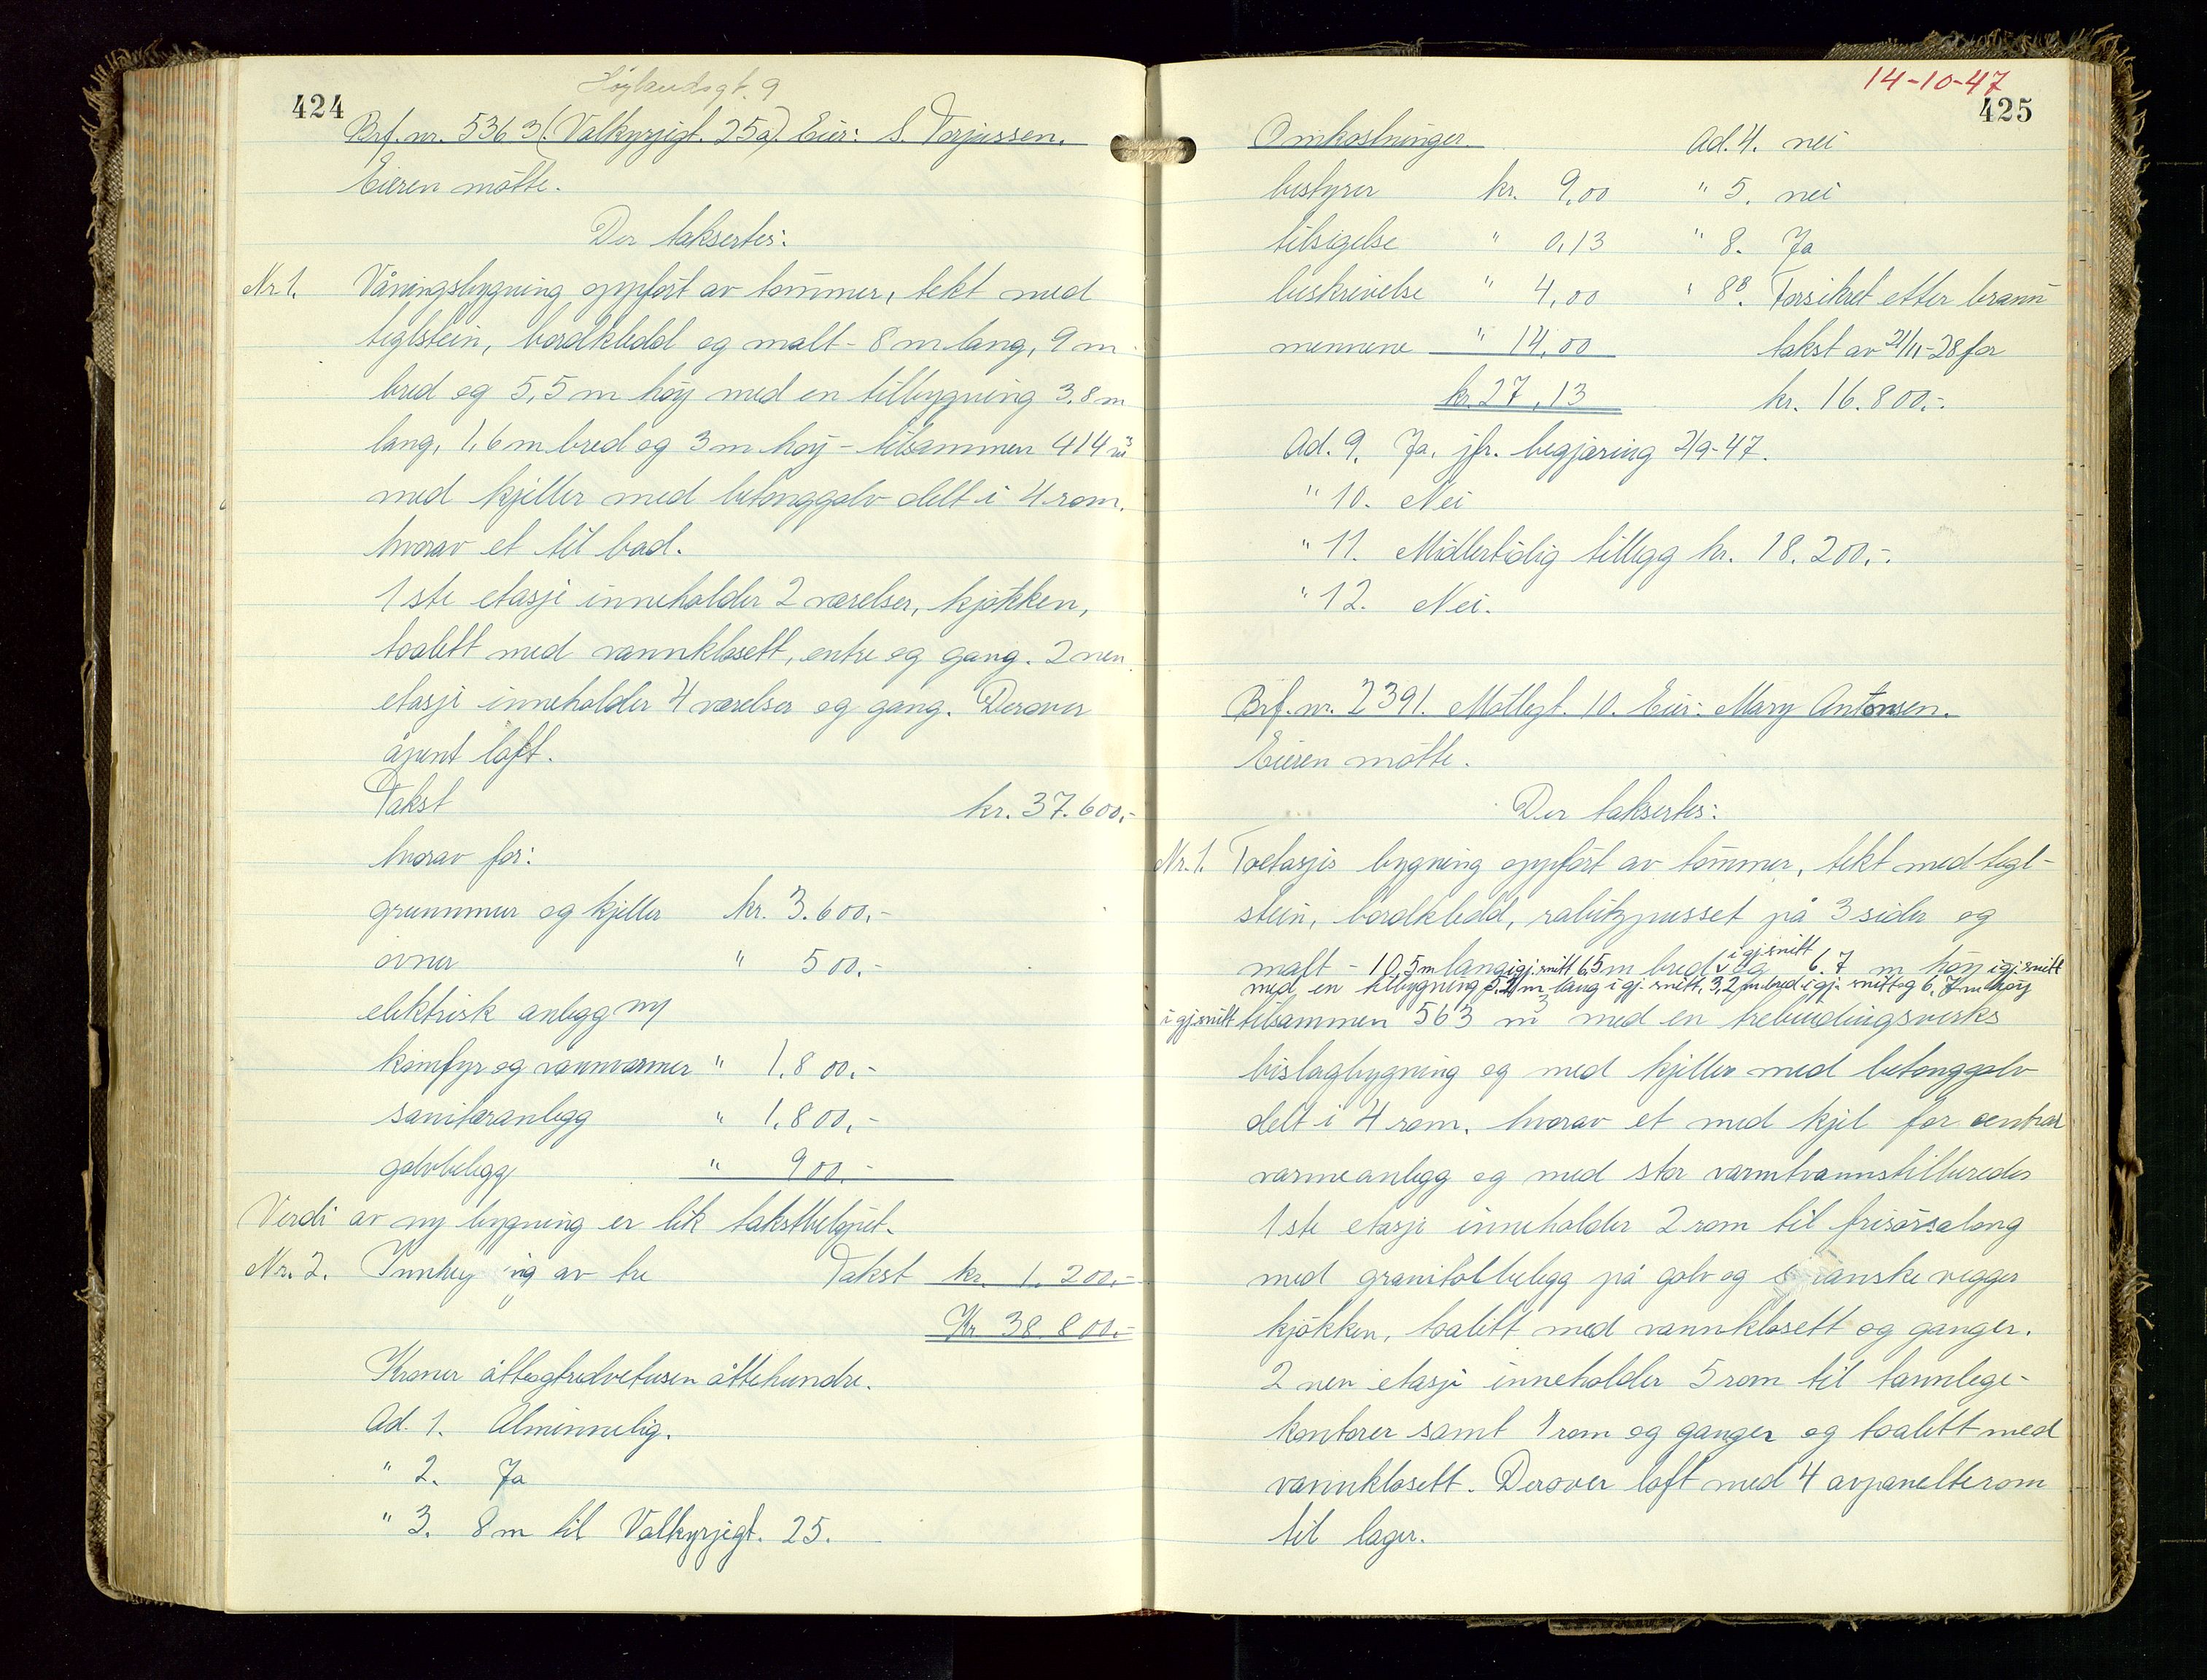 424
Høylandsgt. 9
Brf. nr. 5363 (Valkyrjegt. 25a). Eier: S. Torjussen.
Eieren møtte.
Der taksertes:
Nr. 1. Våningsbygning oppført av tømmer, tekt med
teglstein, bordkledd og malt - 8 m lang, 9 m
bred og 5,5 m høy med en tilbygning 3,8 m
lang, 1,6 m bred og 3 m høy - tilsammen 414 m³
med kjeller med betonggolv delt i 4 rom,
hvorav et til bad.
1ste etasje inneholder 2 værelser, kjøkken,
toalett med vannklosett, entre og gang. 2nen
etasje inneholder 4 værelser og gang. Derover
åpent loft.
Takst kr. 37.600,-
hvorav for:
grunnmur og kjeller kr. 3.600,-
ovner " 500,-
elektrisk anlegg m/
komfyr og vannvarmer " 1.800,-
sanitæranlegg " 1.800,-
golvbelegg " 900,-
Verdi av ny bygning er lik takstbeløpet.
Nr. 2. Innhegning av tre Takst kr. 1.200,-
Kr 38.800,-
Kroner åtteogtredvetusen åttehundre.
Ad. 1. Alminnelig.
" 2. Ja
" 3. 8 m til Valkyrjegt. 25.
14-10-47
425
Omkostninger
bestyrer kr. 9,00
tilsigelse " 0,13
beskrivelse " 4,00
mennene " 14,00
kr. 27,13
Ad. 4. nei
" 5. nei
" 8. Ja
" 8B. Forsikret etter brann
takst av 21/11-28 for
kr. 16.800,-.
Ad. 9. Ja, jfr. begjæring 2/9-47.
" 10. Nei
" 11. Midlertidig tillegg kr. 18.200,-.
" 12. Nei.
Brf. nr. 2391. Møllegt. 10. Eier: Mary Antonsen.
Eieren møtte.
Der taksertes:
Nr. 1. Toetasjes bygning oppført av tømmer, tekt med tegl-
stein, bordkledd, rabitzpusset på 3 sider og
malt - 10,5 m lang i gj. snitt 6,5 m bred i gj. snitt og 6,7 m høy i gj. snitt
med en tilbygning 5,2 m lang i gj. snitt, 3,2 m bred i gj. snitt og 6,7 m høy
i gj. snitt tilsammen 563 m³ med en trebindingsverks
bislagbygning og med kjeller med betonggolv
delt i 4 rom, hvorav et med kjel for central
varmeanlegg og med stor varmtvannstilbereder
1ste etasje inneholder 2 rom til frisørsalong
med granitolbelegg på golv og ganske vegger
kjøkken, toalett med vannklosett og ganger.
2nen etasje inneholder 5 rom til tannlege-
kontorer samt 1 rom og ganger og toalett med
vannklosett. Derover loft med 4 avpanelte rom
til lager.